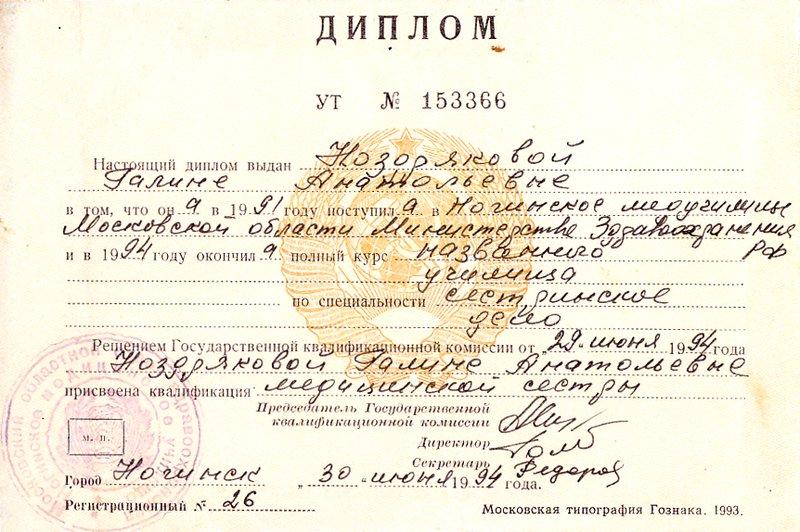 ДИПЛОМ
УТ № 153366
Настоящий диплом выдан Ноздряковой
Галине Анатольевне
в том, что он а в 1991 году поступил а в Ногинское медучилище
Московской области Министерства Здравоохранения
и в 1994 году окончил а полный курс названного РФ
училища
по специальности сестринское
дело
Решением Государственной квалификационной комиссии от „29“ июня 1994 года
Ноздряковой Галине Анатольевне
присвоена квалификация медицинской сестры
Председатель Государственной
квалификационной комиссии
Директор
Секретарь Федоров
м. п.
Город Ногинск „30“ июня 1994 года.
Регистрационный № 26
Московская типография Гознака. 1993.